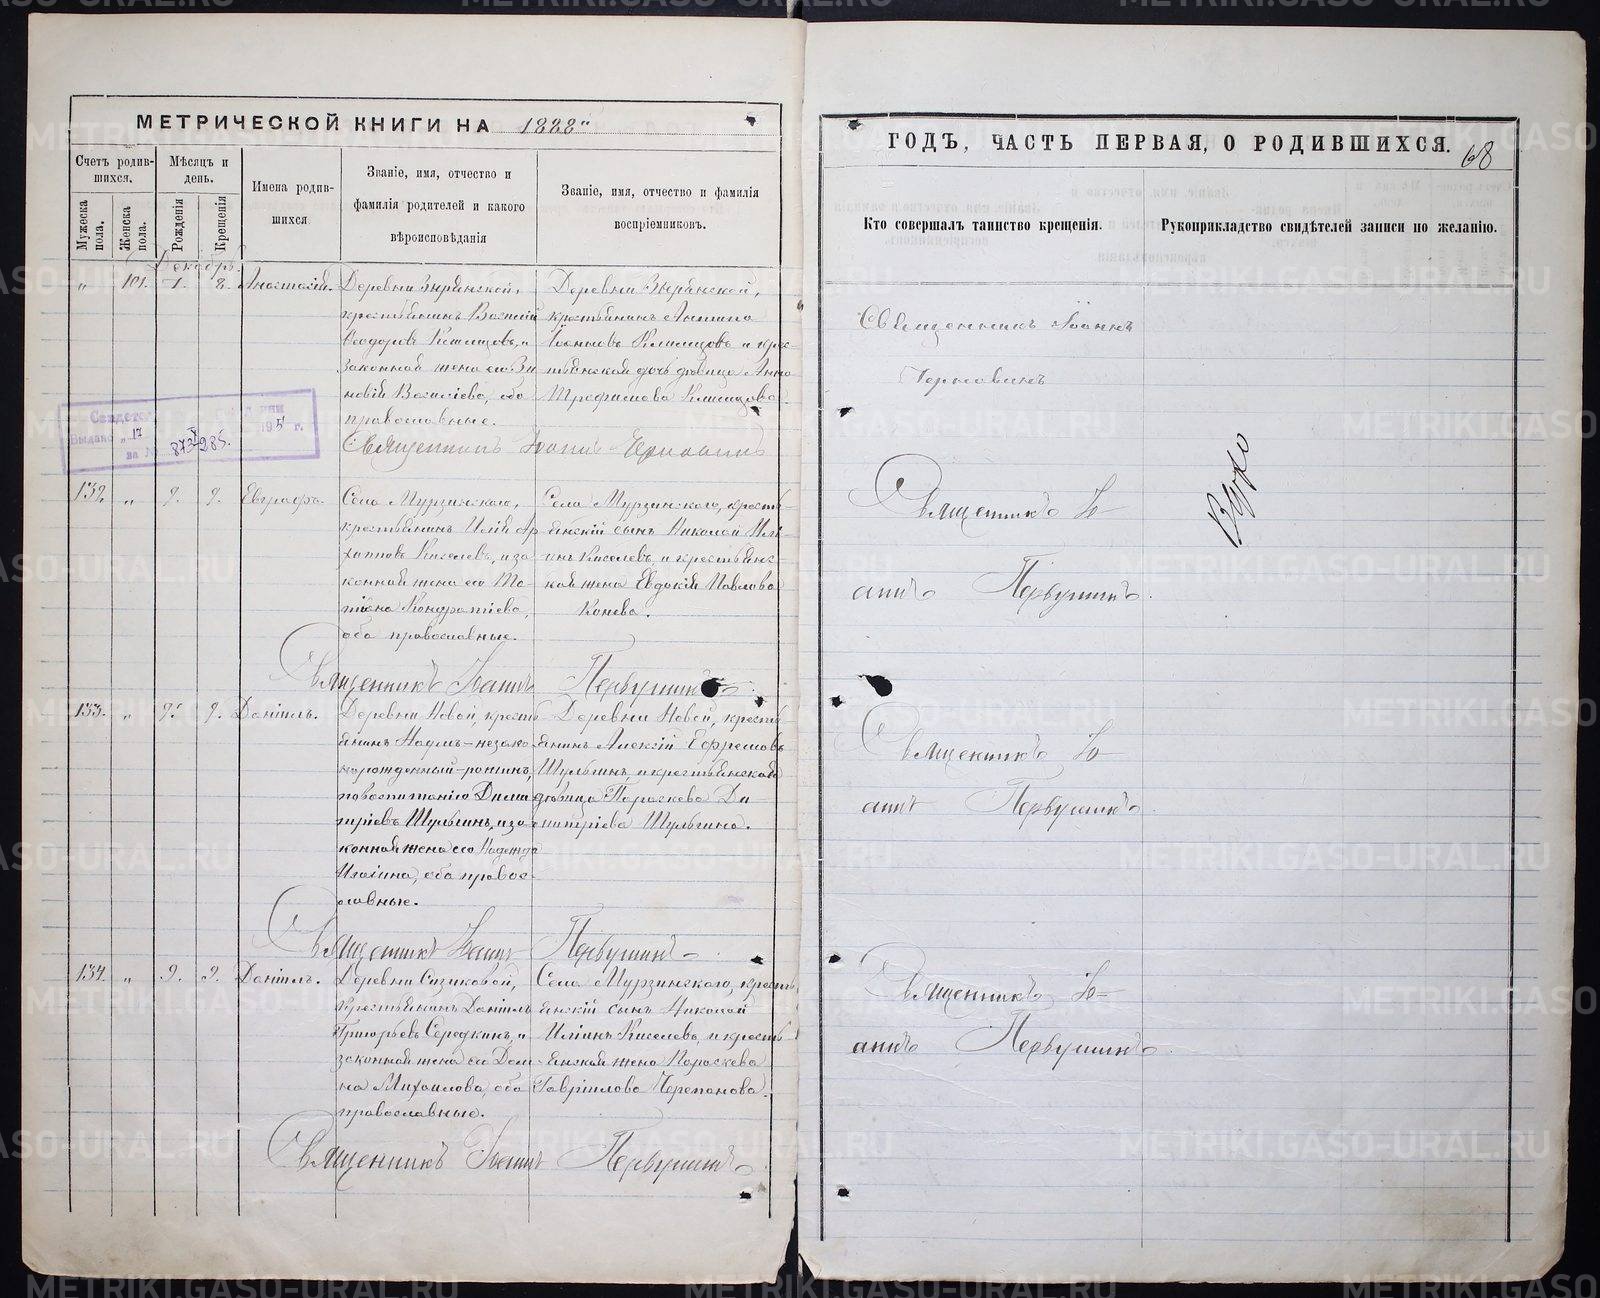 МЕТРИЧЕСКОЙ КНИГИ НА 1888й
Счетъ родившихся.
Мѣсяцъ и день.
Мужеска пола.
Женска пола.
Рожденія
Крещенія
Имена родив-
шихся.
Званіе, имя, отчество и
фамилія родителей и какого
вѣроисповѣданія
Званіе, имя, отчество и фамилія
воспріемниковъ.
Декабрь.
" 101. 1. 8. Анастасія.
Деревни Зырянской,
крестьянинъ Василій
Ѳеодоровъ
законная жена его Зи
новія Васильева, оба
православные.
Деревни Зырянской,
крестьянинъ Антипа
Іоанновъ и крес-
тьянская дочь дѣвица Анна
Трофимова
Священникъ Іоаннъ
Свидетел
Выдано „17
за № 285.
г.
132 " 9. 9. Евграфъ.
Села Мурзинскаго,
крестьянинъ Илія Ар
хиповъ Киселевъ, и за
конная жена его Та-
тіана Кондратіева,
оба православные.
Села Мурзинскаго, кресть-
янскій сынъ Николай Илі-
инъ Киселевъ, и крестьянс-
кая жена Евдокія Павлова
Конева.
Священникъ Іоаннъ Первушинъ
133. " 9. 9. Даніилъ.
Деревни Новой, кресть
янинъ Наумъ-незако
норожденный-
по воспитанію Дими
тріевъ Шульгинъ, и за-
конная жена его Надежда
Ильина, оба право-
славные.
Деревни Новой, кресть
янинъ Алексій Ефремовъ
Шульгинъ, и крестьянская
дѣвица Параскева Ди
митріева Шульгина.
Священникъ Іоаннъ Первушинъ
134. " 9. 9. Даніилъ.
Деревни Сизиковой,
крестьянинъ Даніилъ
Григорьевъ Середкинъ, и
законная жена его Дом
на Михаилова, оба
православные.
Села Мурзинскаго, кресть
янскій сынъ Николай
Иліинъ Киселевъ, и кресть
янская жена Параскева
Гавріилова Черепанова.
Священникъ Іоаннъ Первушинъ
ГОДЪ, ЧАСТЬ ПЕРВАЯ, О РОДИВШИХСЯ.
68
Кто совершалъ таинство крещенія.
Рукоприкладство свидѣтелей записи по желанію.
Священникъ Іоаннъ
Священникъ Іо-
аннъ Первушинъ.
Священникъ Іо-
аннъ Первушинъ
Священникъ Іо-
аннъ Первушинъ.
METRIKI.GASO-URAL.RU